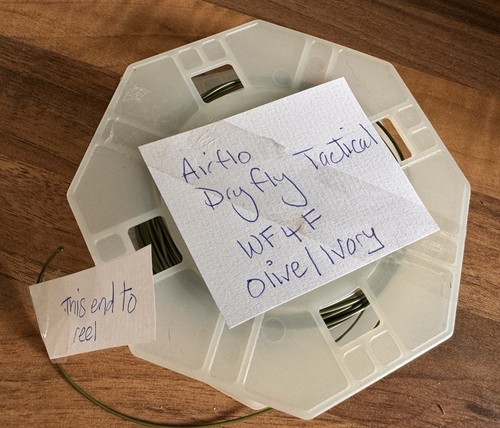 Airflo
Dry fly Tactical
WF4F
Olive/Ivory
This end to
reel